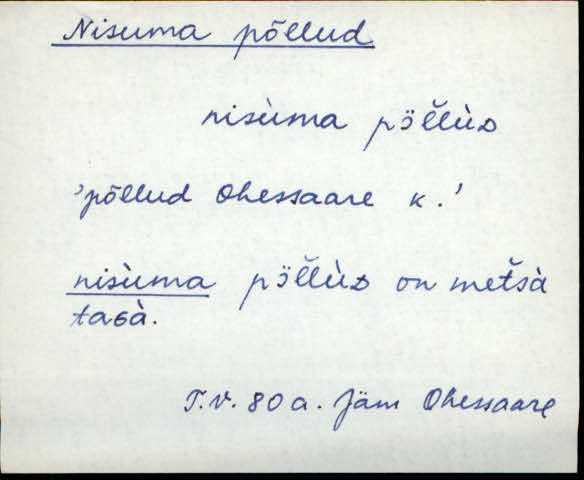 Nisuma põllud
nisùma pɜ̈l̆l̆ùᴅ
'põllud Ohessaare k.'
nisùma pɜ̈l̆l̆ùᴅ on met̆sà
taɢà.
T.V. 80 a. Jäm Ohessaare